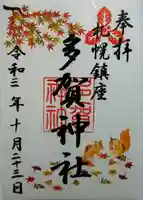 奉拝
札幌鎮座
多賀神社
令和三年十月二十三日